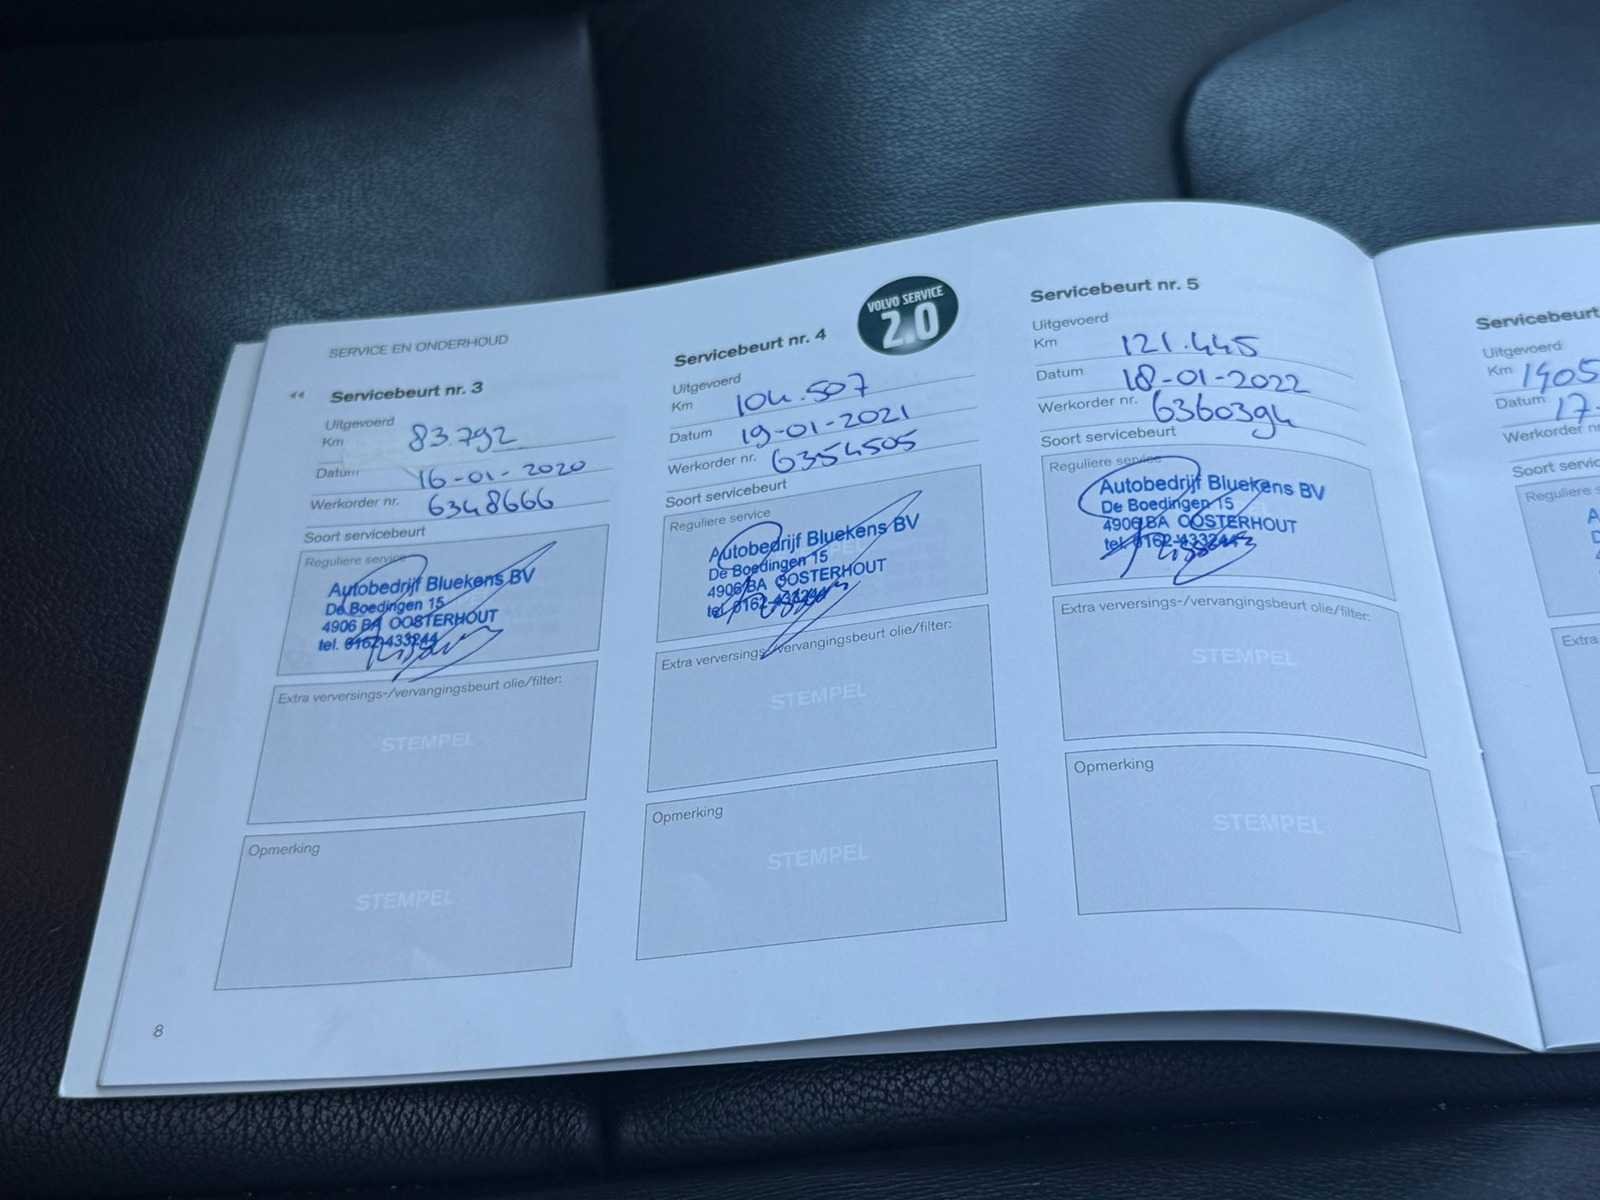 SERVICE EN ONDERHOUD
Servicebeurt nr. 3
Uitgevoerd
Km 83.792
Datum 16-01-2020
Werkorder nr. 6348666
Soort servicebeurt
Reguliere service
Autobedrijf Bluekens BV
De Boedingen 15
4906 BA OOSTERHOUT
tel. 0162-433244
Extra verversings-/vervangingsbeurt olie/filter:
STEMPEL
Opmerking
STEMPEL
8
VOLVO SERVICE
2.0
Servicebeurt nr. 4
Uitgevoerd
Km 104.507
Datum 19-01-2021
Werkorder nr. 6354505
Soort servicebeurt
Reguliere service
Autobedrijf Bluekens BV
De Boedingen 15
4906 BA OOSTERHOUT
tel. 0162-433244
Extra verversings-/vervangingsbeurt olie/filter:
STEMPEL
Opmerking
STEMPEL
Servicebeurt nr. 5
Uitgevoerd
Km 121.445
Datum 18-01-2022
Werkorder nr. 6360394
Soort servicebeurt
Reguliere service
Autobedrijf Bluekens BV
De Boedingen 15
4906 BA OOSTERHOUT
tel. 0162-433244
Extra verversings-/vervangingsbeurt olie/filter:
STEMPEL
Opmerking
STEMPEL
Servicebeurt
Uitgevoerd
Km 1405
Datum 17-
Werkorder nr
Soort servic
Reguliere s
A
D
Extra